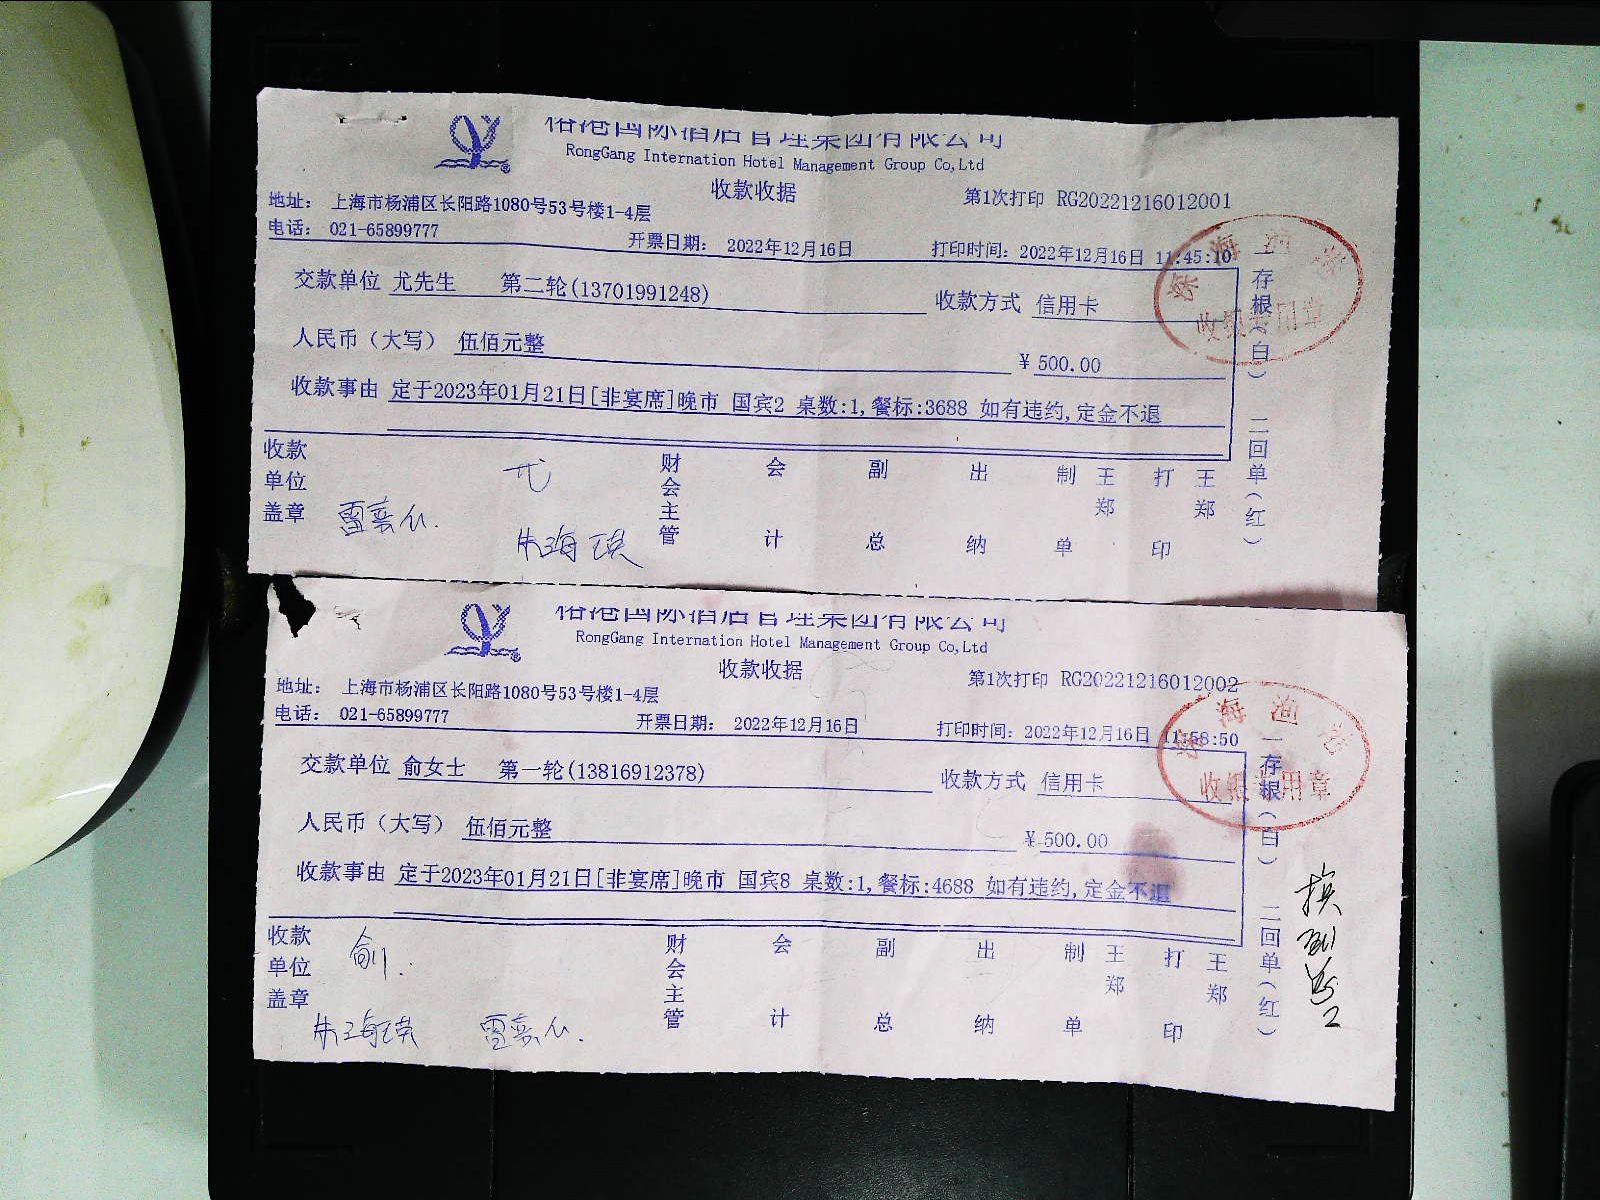 裕港国际酒店管理集团有限公司
RongGang Internation Hotel Management Group Co,Ltd
收款收据
第1次打印 RG20221216012001
地址： 上海市杨浦区长阳路1080号53号楼1-4层
电话： 021-65899777
开票日期： 2022年12月16日
打印时间：2022年12月16日 11:45:10
交款单位 尤先生 第二轮(13701991248)
收款方式 信用卡
人民币（大写） 伍佰元整
¥ 500.00
收款事由 定于2023年01月21日[非宴席]晚市 国宾2 桌数:1,餐标:3688 如有违约,定金不退
收款单位盖章
尤
朱海瑛
财会主管 会计 副总 出纳 制单 王郑 打印 王郑
一存根（白） 二回单（红）
收银专用章
裕港国际酒店管理集团有限公司
RongGang Internation Hotel Management Group Co,Ltd
收款收据
第1次打印 RG20221216012002
地址： 上海市杨浦区长阳路1080号53号楼1-4层
电话： 021-65899777
开票日期： 2022年12月16日
打印时间：2022年12月16日 11:58:50
交款单位 俞女士 第一轮(13816912378)
收款方式 信用卡
人民币（大写） 伍佰元整
¥ 500.00
收款事由 定于2023年01月21日[非宴席]晚市 国宾8 桌数:1,餐标:4688 如有违约,定金不退
收款单位盖章
俞
朱海瑛
财会主管 会计 副总 出纳 制单 王郑 打印 王郑
一存根（白） 二回单（红）
收银专用章
换到
2